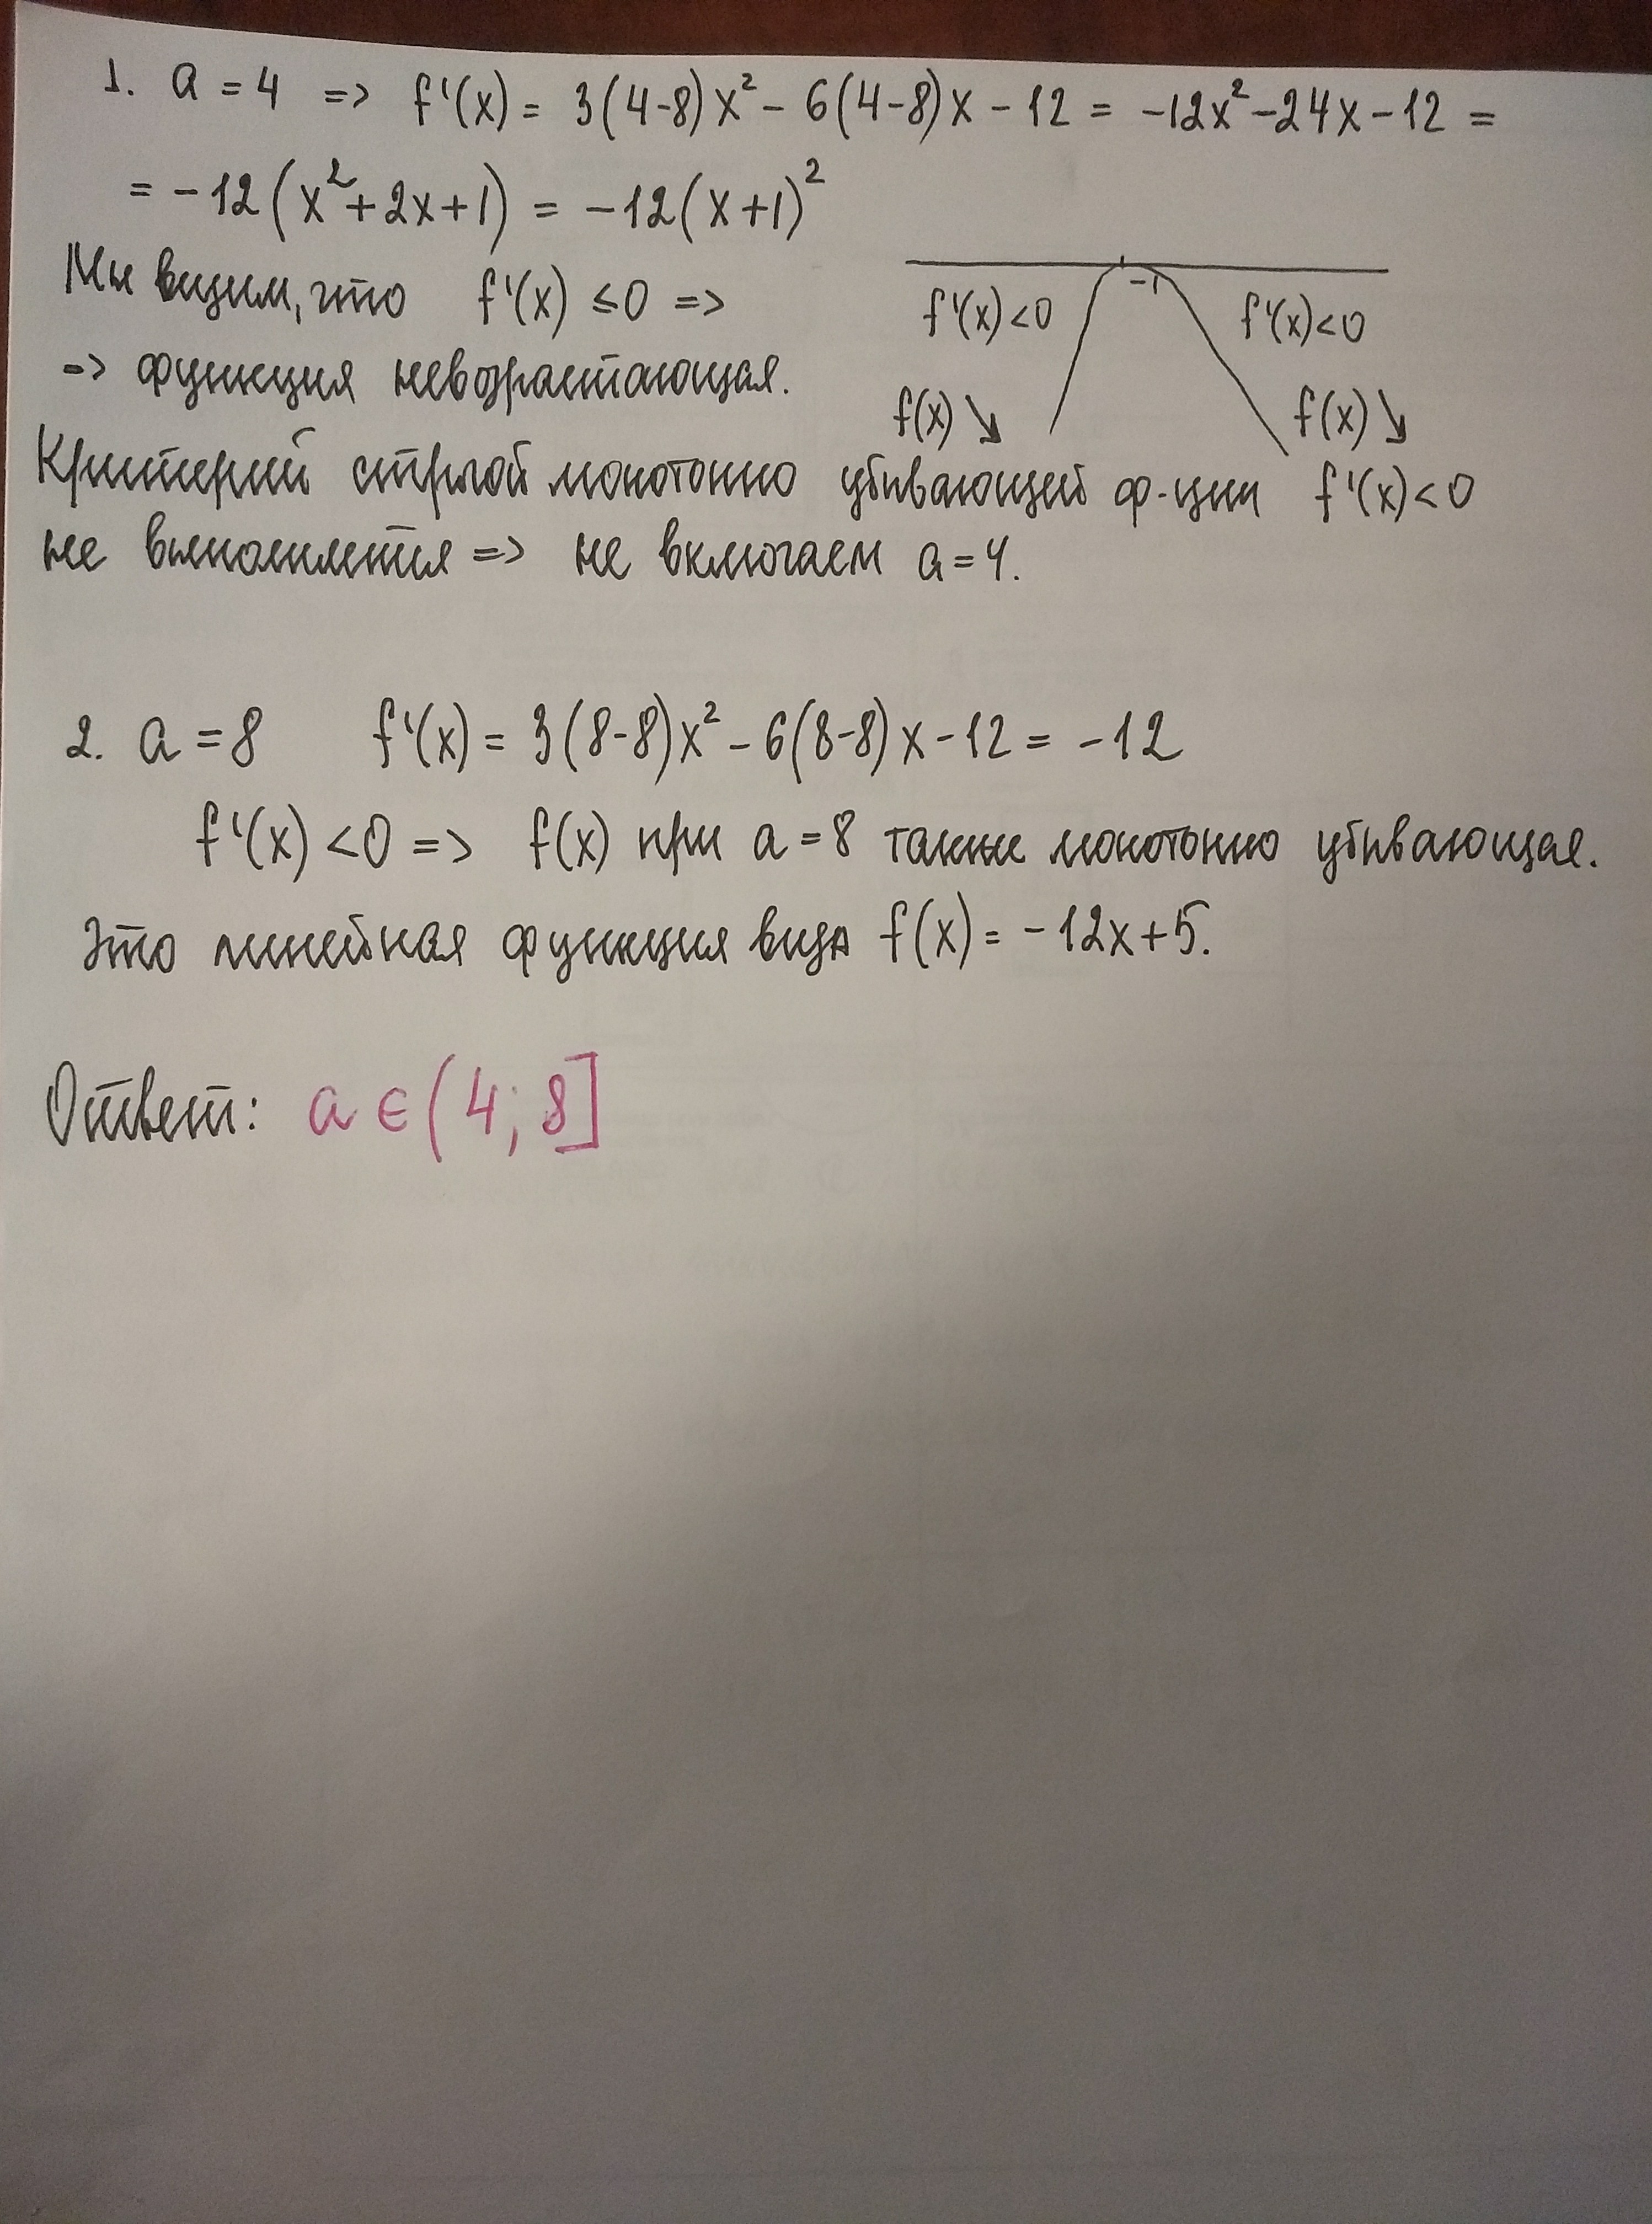 1. a = 4 => f'(x) = 3(4-8)x² - 6(4-8)x - 12 = -12x² - 24x - 12 =
= -12(x² + 2x + 1) = -12(x+1)²
Мы видим, что f'(x) ≤ 0 =>
=> функция невозрастающая.
-1
f'(x) < 0 f'(x) < 0
f(x) ↘ f(x) ↘
Критерий строгой монотонно убывающей ф-ции f'(x) < 0
не выполняется => не включаем a = 4.
2. a = 8 f'(x) = 3(8-8)x² - 6(8-8)x - 12 = -12
f'(x) < 0 => f(x) при a = 8 также монотонно убывающая.
Это линейная функция вида f(x) = -12x + 5.
Ответ: a ∈ (4; 8]